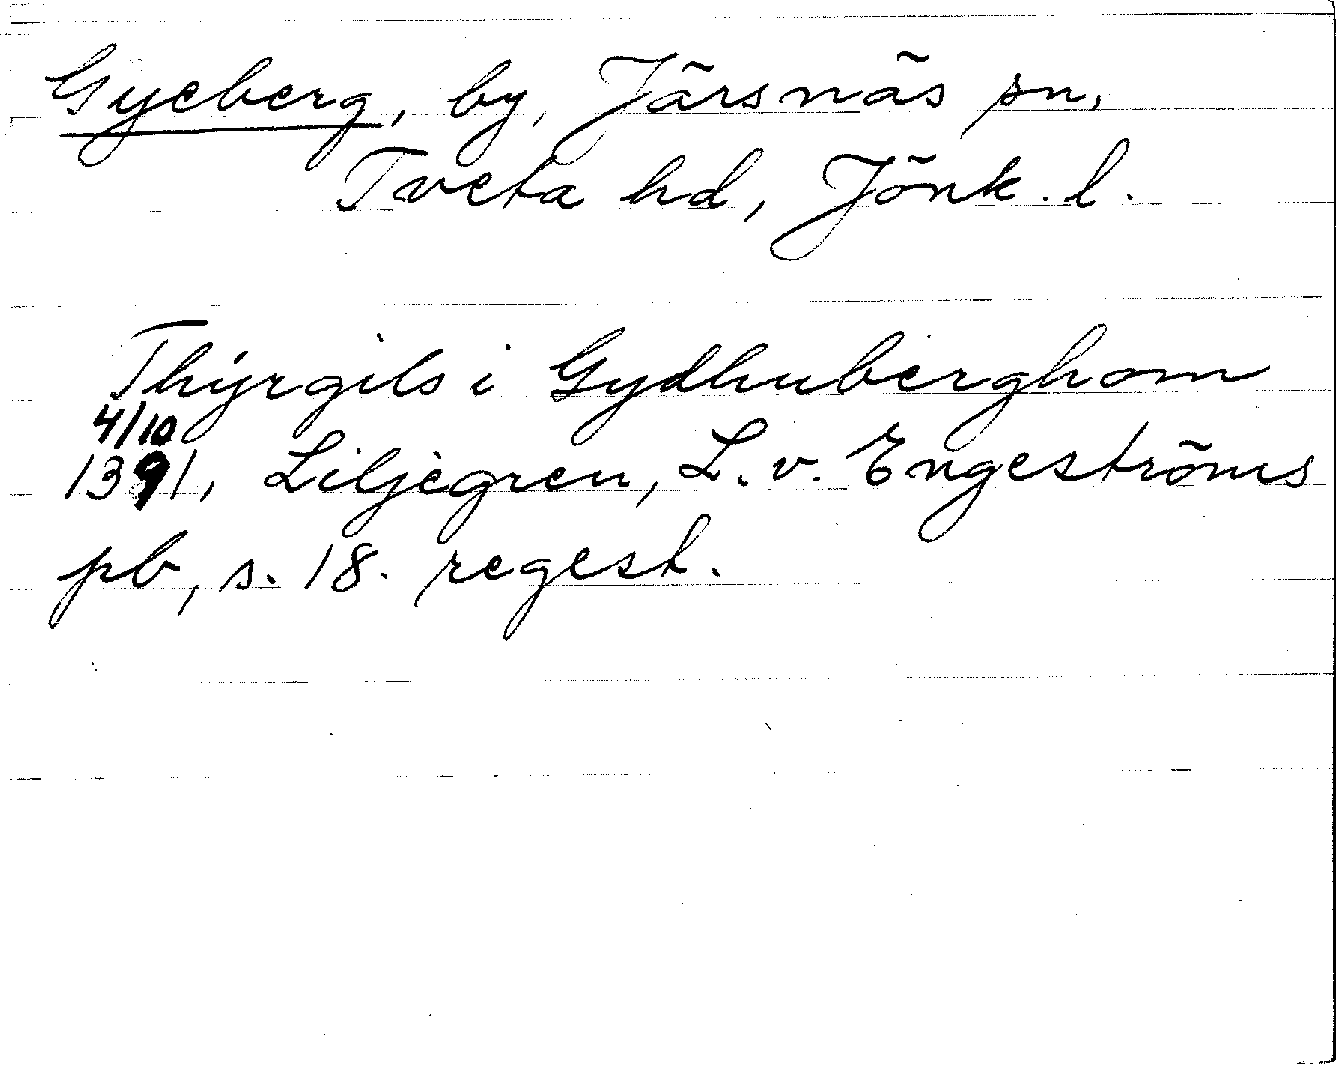 Gyeberg, by, Järsnäs sn,
Tveta hd, Jönk. l.
Thyrgils i Gydhuberghom
4/10
1391, Liljegren, L. v. Engeströms
pb, s. 18. regest.